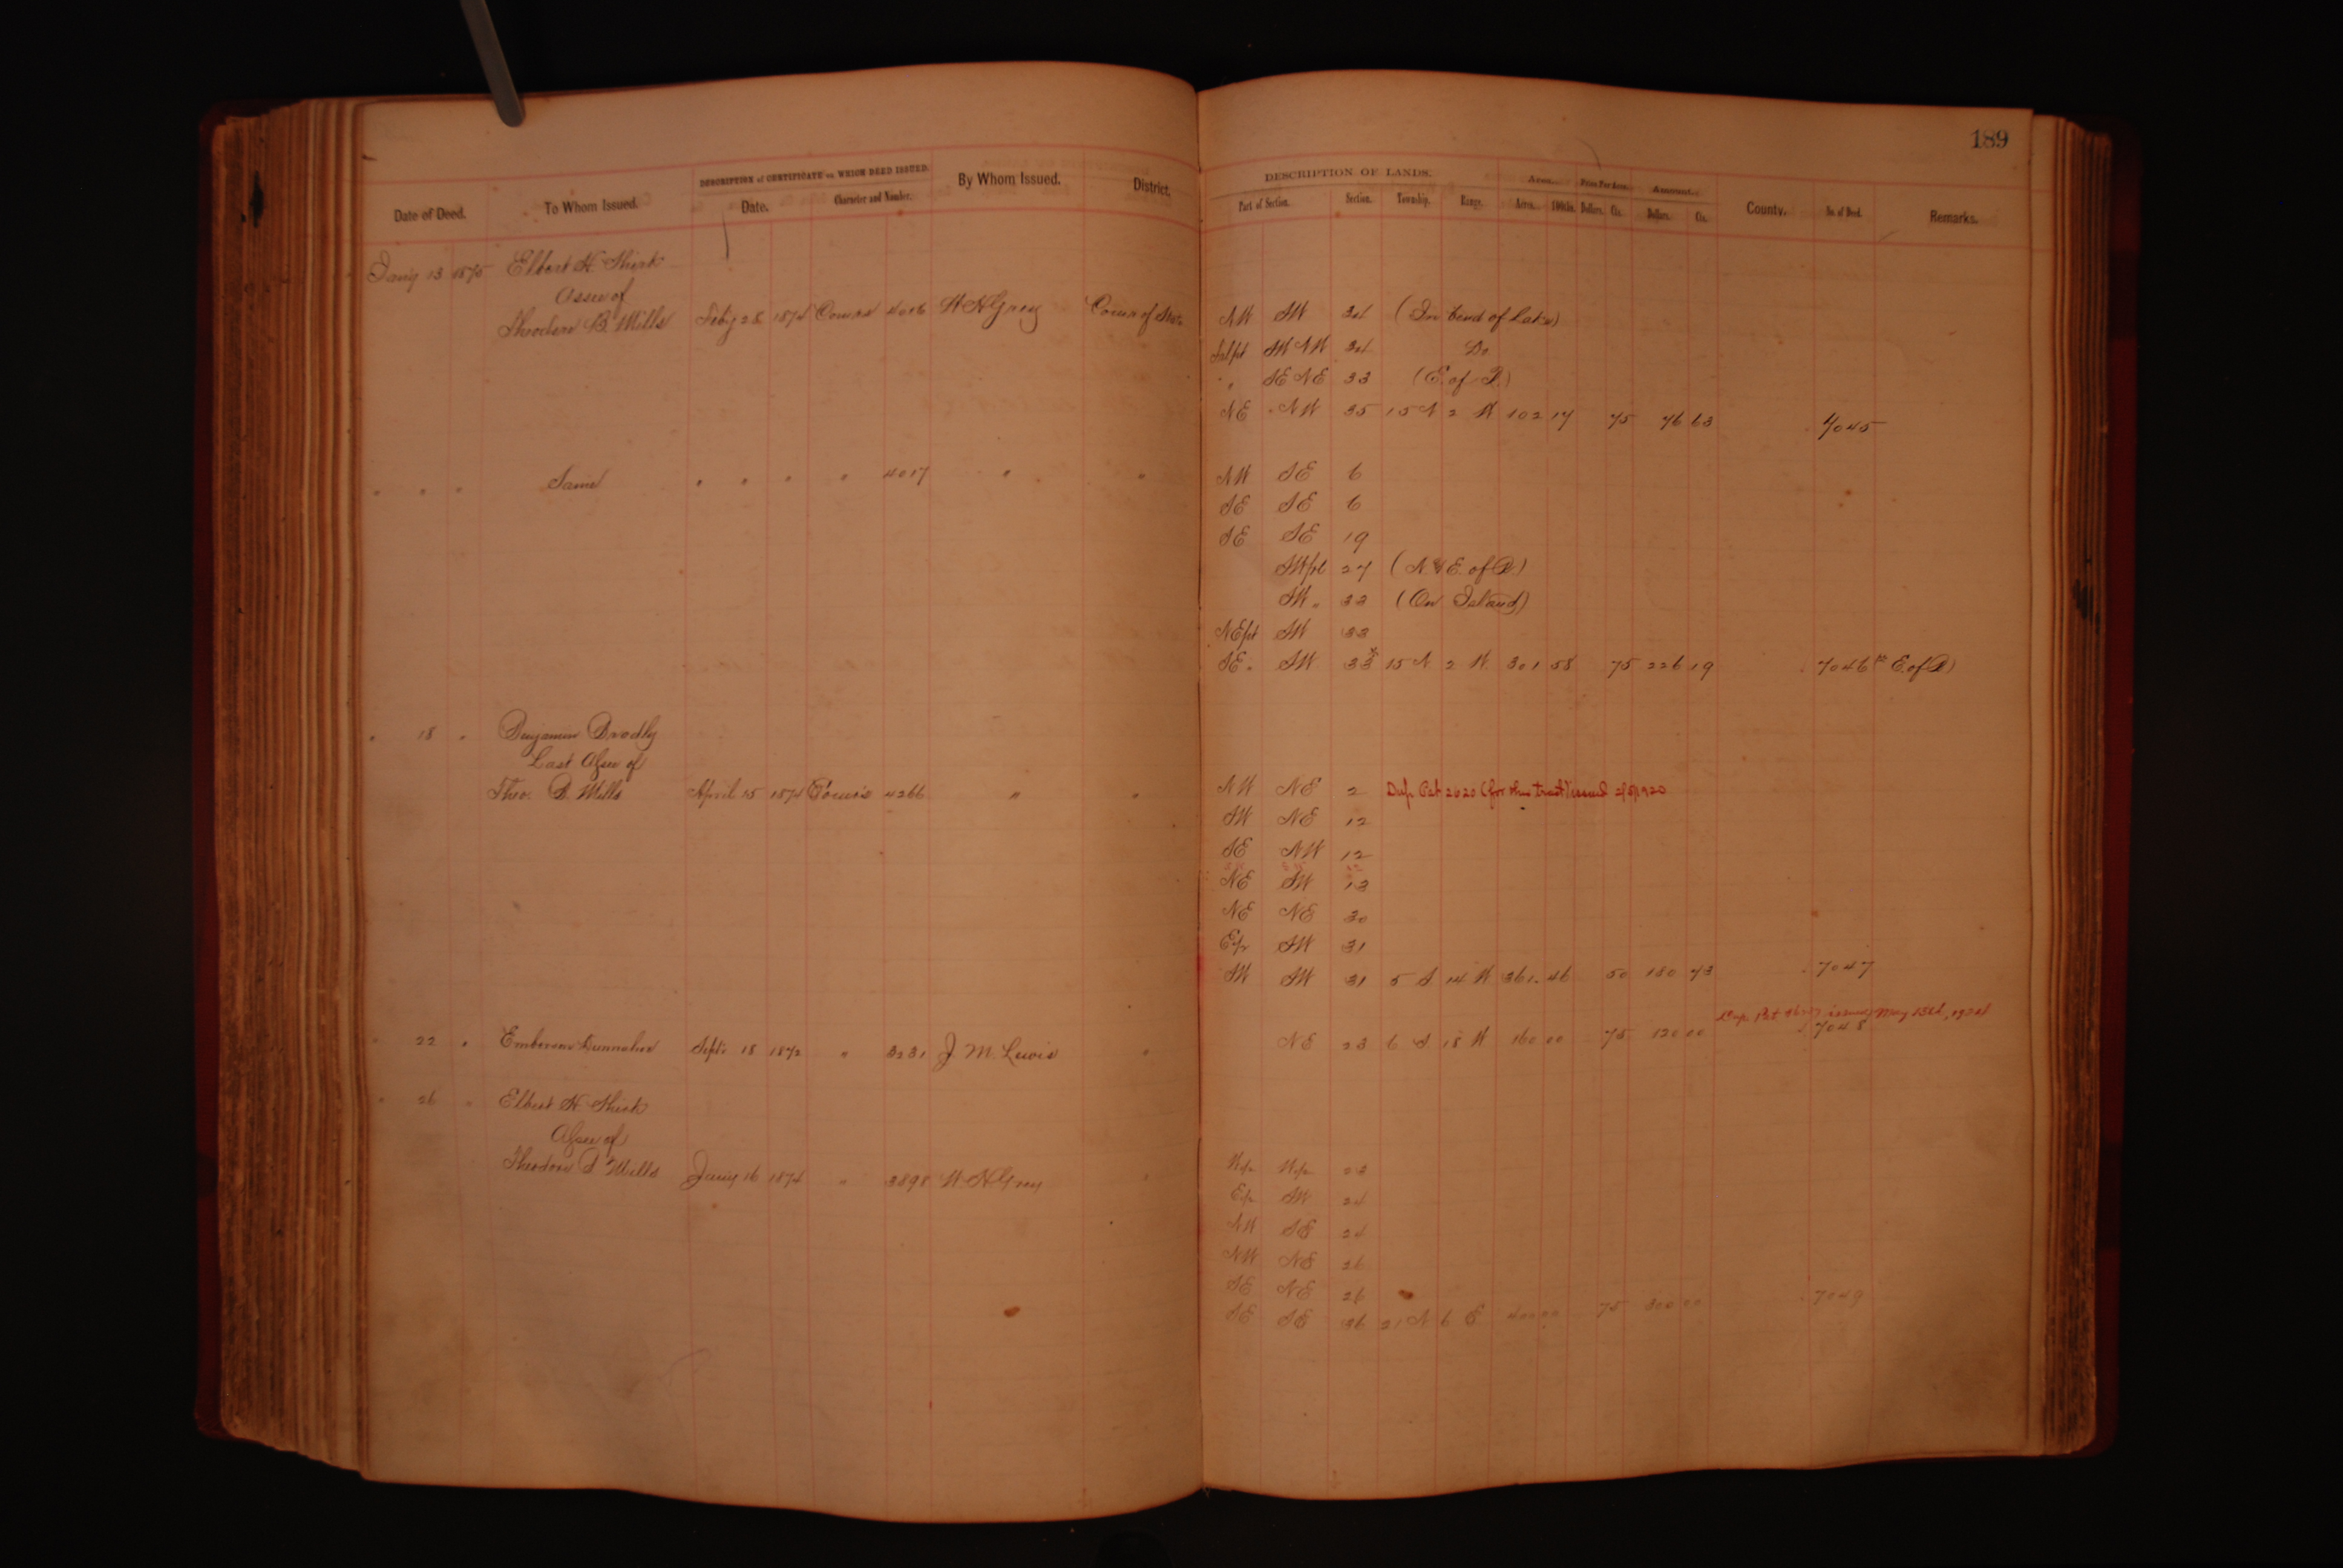 189
DESCRIPTION of CERTIFICATE on WHICH DEED ISSUED.
DESCRIPTION OF LANDS.
Acres. Price Per Acre. Amount.
Date of Deed. To Whom Issued. Date. Character and Number. By Whom Issued. District. Part of Section. Section. Township. Range. Acres. 100ths. Dollars. Cts. Dollars. Cts. County. No. of Deed. Remarks.
Jany 13 1875 Elbert H. Shirk
Assee of
Theodore B. Mills Feby 28 1874 4016 W H Grey NW SW 34 (In bend of Lake)
SW NW 34 Do
" SE NE 33 (E. of R.)
NE NW 35 15 N 2 W 102 17 75 76 63 7045
" " " Same " " " " 4017 " " NW SE 6
SE SE 6
SE SE 19
SW pt 27 (N & E. of R.)
SW " 33 (On Island)
NE pt SW 33
SE " SW 33 * 15 N 2 W 301 58 75 226 19 7046 (* E. of R)
" 18 " Benjamin Bradly
Last Assee of
Theo. B. Mills April 15 1874 4266 " " NW NE 2 Dup. Pat 2620 (for this tract) issued 2/5/1920
SW NE 12
SE NW 12
NE SW 13
NE NE 30
E½ SW 31
SW SW 31 5 S 14 W 361 46 50 180 73 7047
Dup. Pat issued May 1924
" 22 " Septr 18 1872 " 3231 J. M. Lewis " NE 23 6 S 18 W 160 00 75 120 00 7048
" 26 " Elbert H. Shirk
Assee of
Theodore B Mills Jany 16 1874 " 3898 W. H Grey " W½ W½ 23
E½ SW 24
NW SE 24
NW NE 26
SE NE 26
SE SE 36 21 N 6 E 400 00 75 300 00 7049